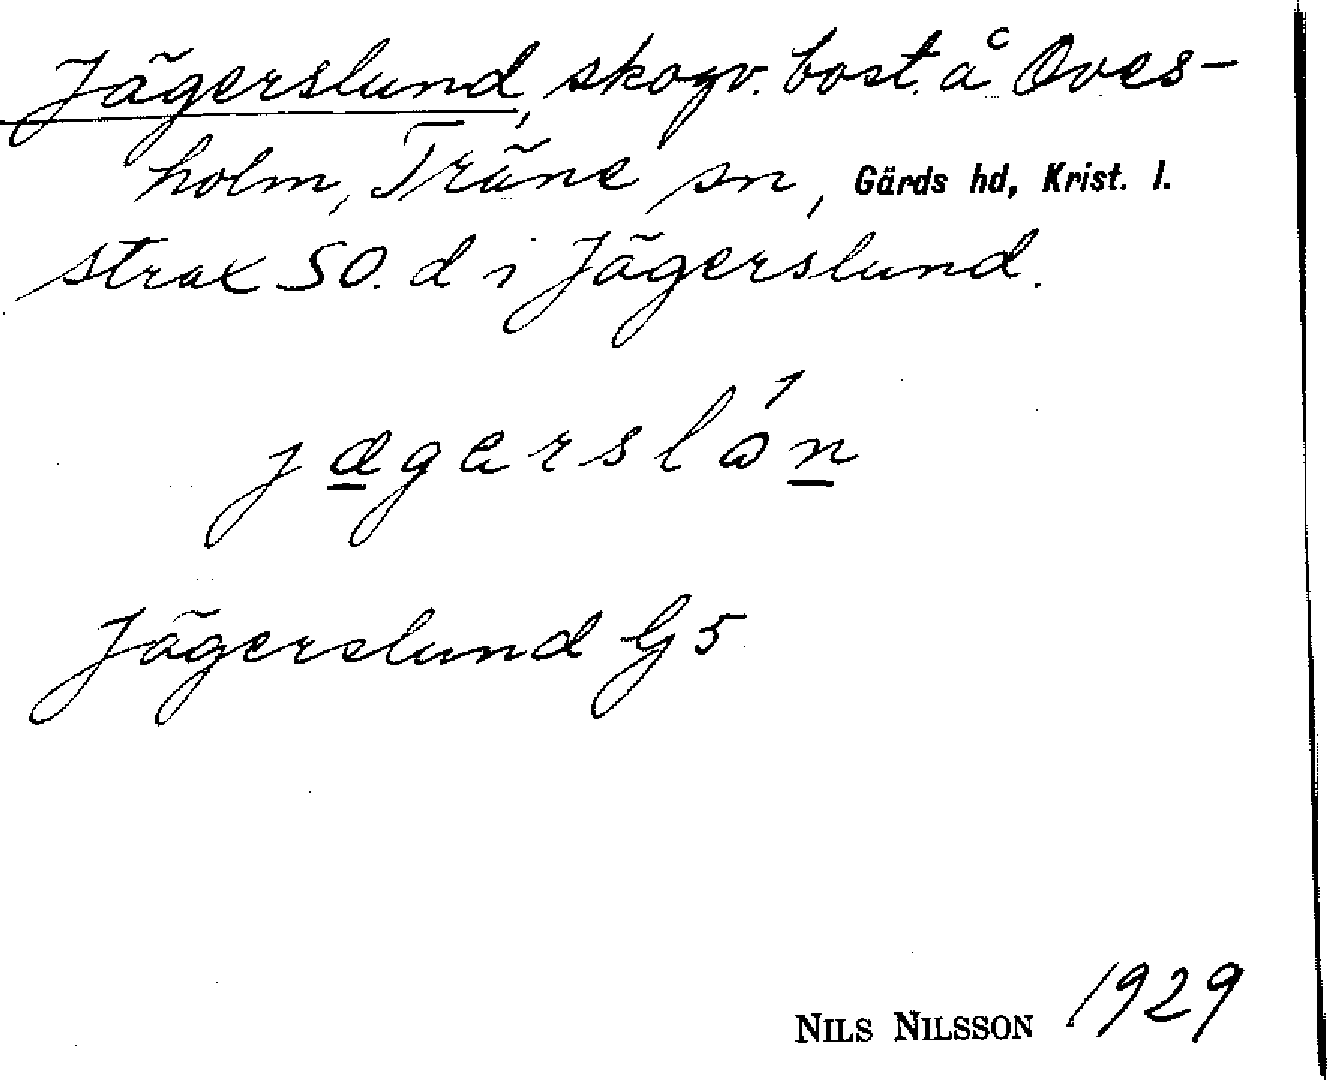 Jägerslund, skogv. bost. å Oves-
holm, Träne sn, Gärds hd, Krist. l.
strax SO. d i Jägerslund.
jægerslón
Jägerslund G5
NILS NILSSON 1929